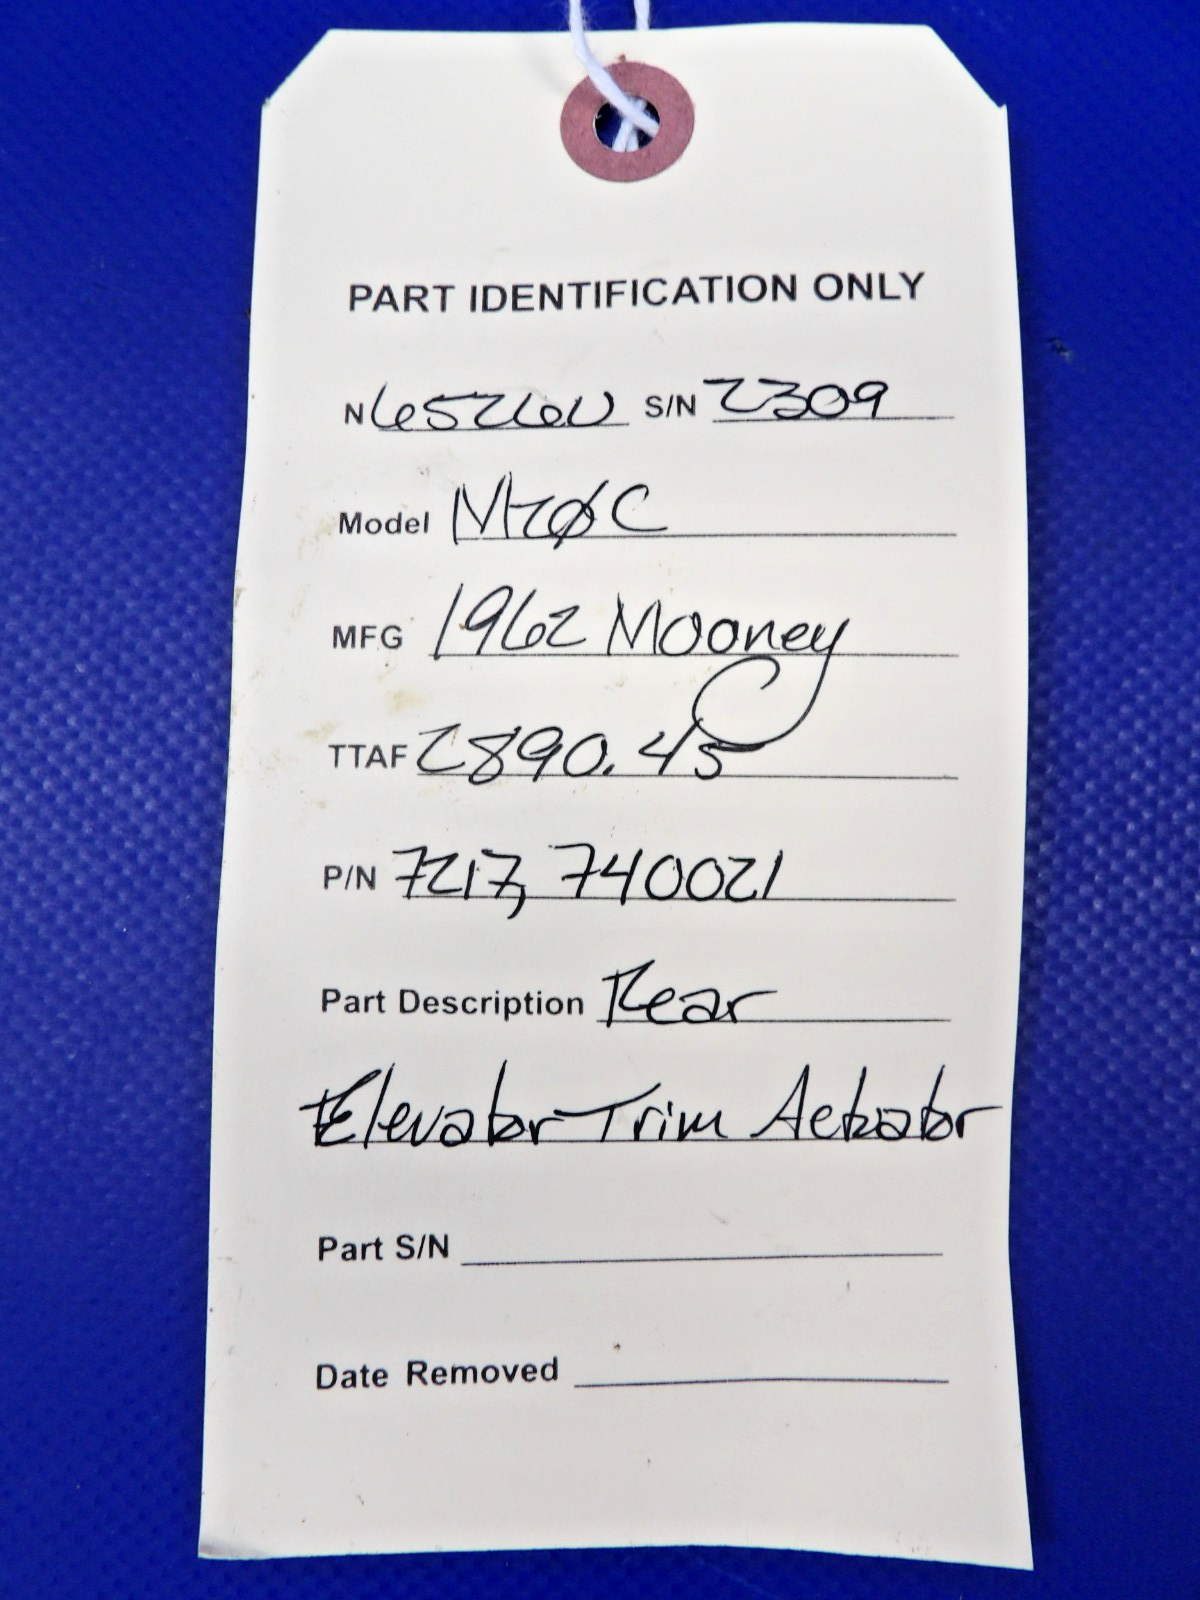 PART IDENTIFICATION ONLY
N6526U S/N 2309
Model M20C
MFG 1962 Mooney
TTAF 2890.45
P/N 7217, 740021
Part Description Rear
Elevator Trim Actuator
Part S/N
Date Removed